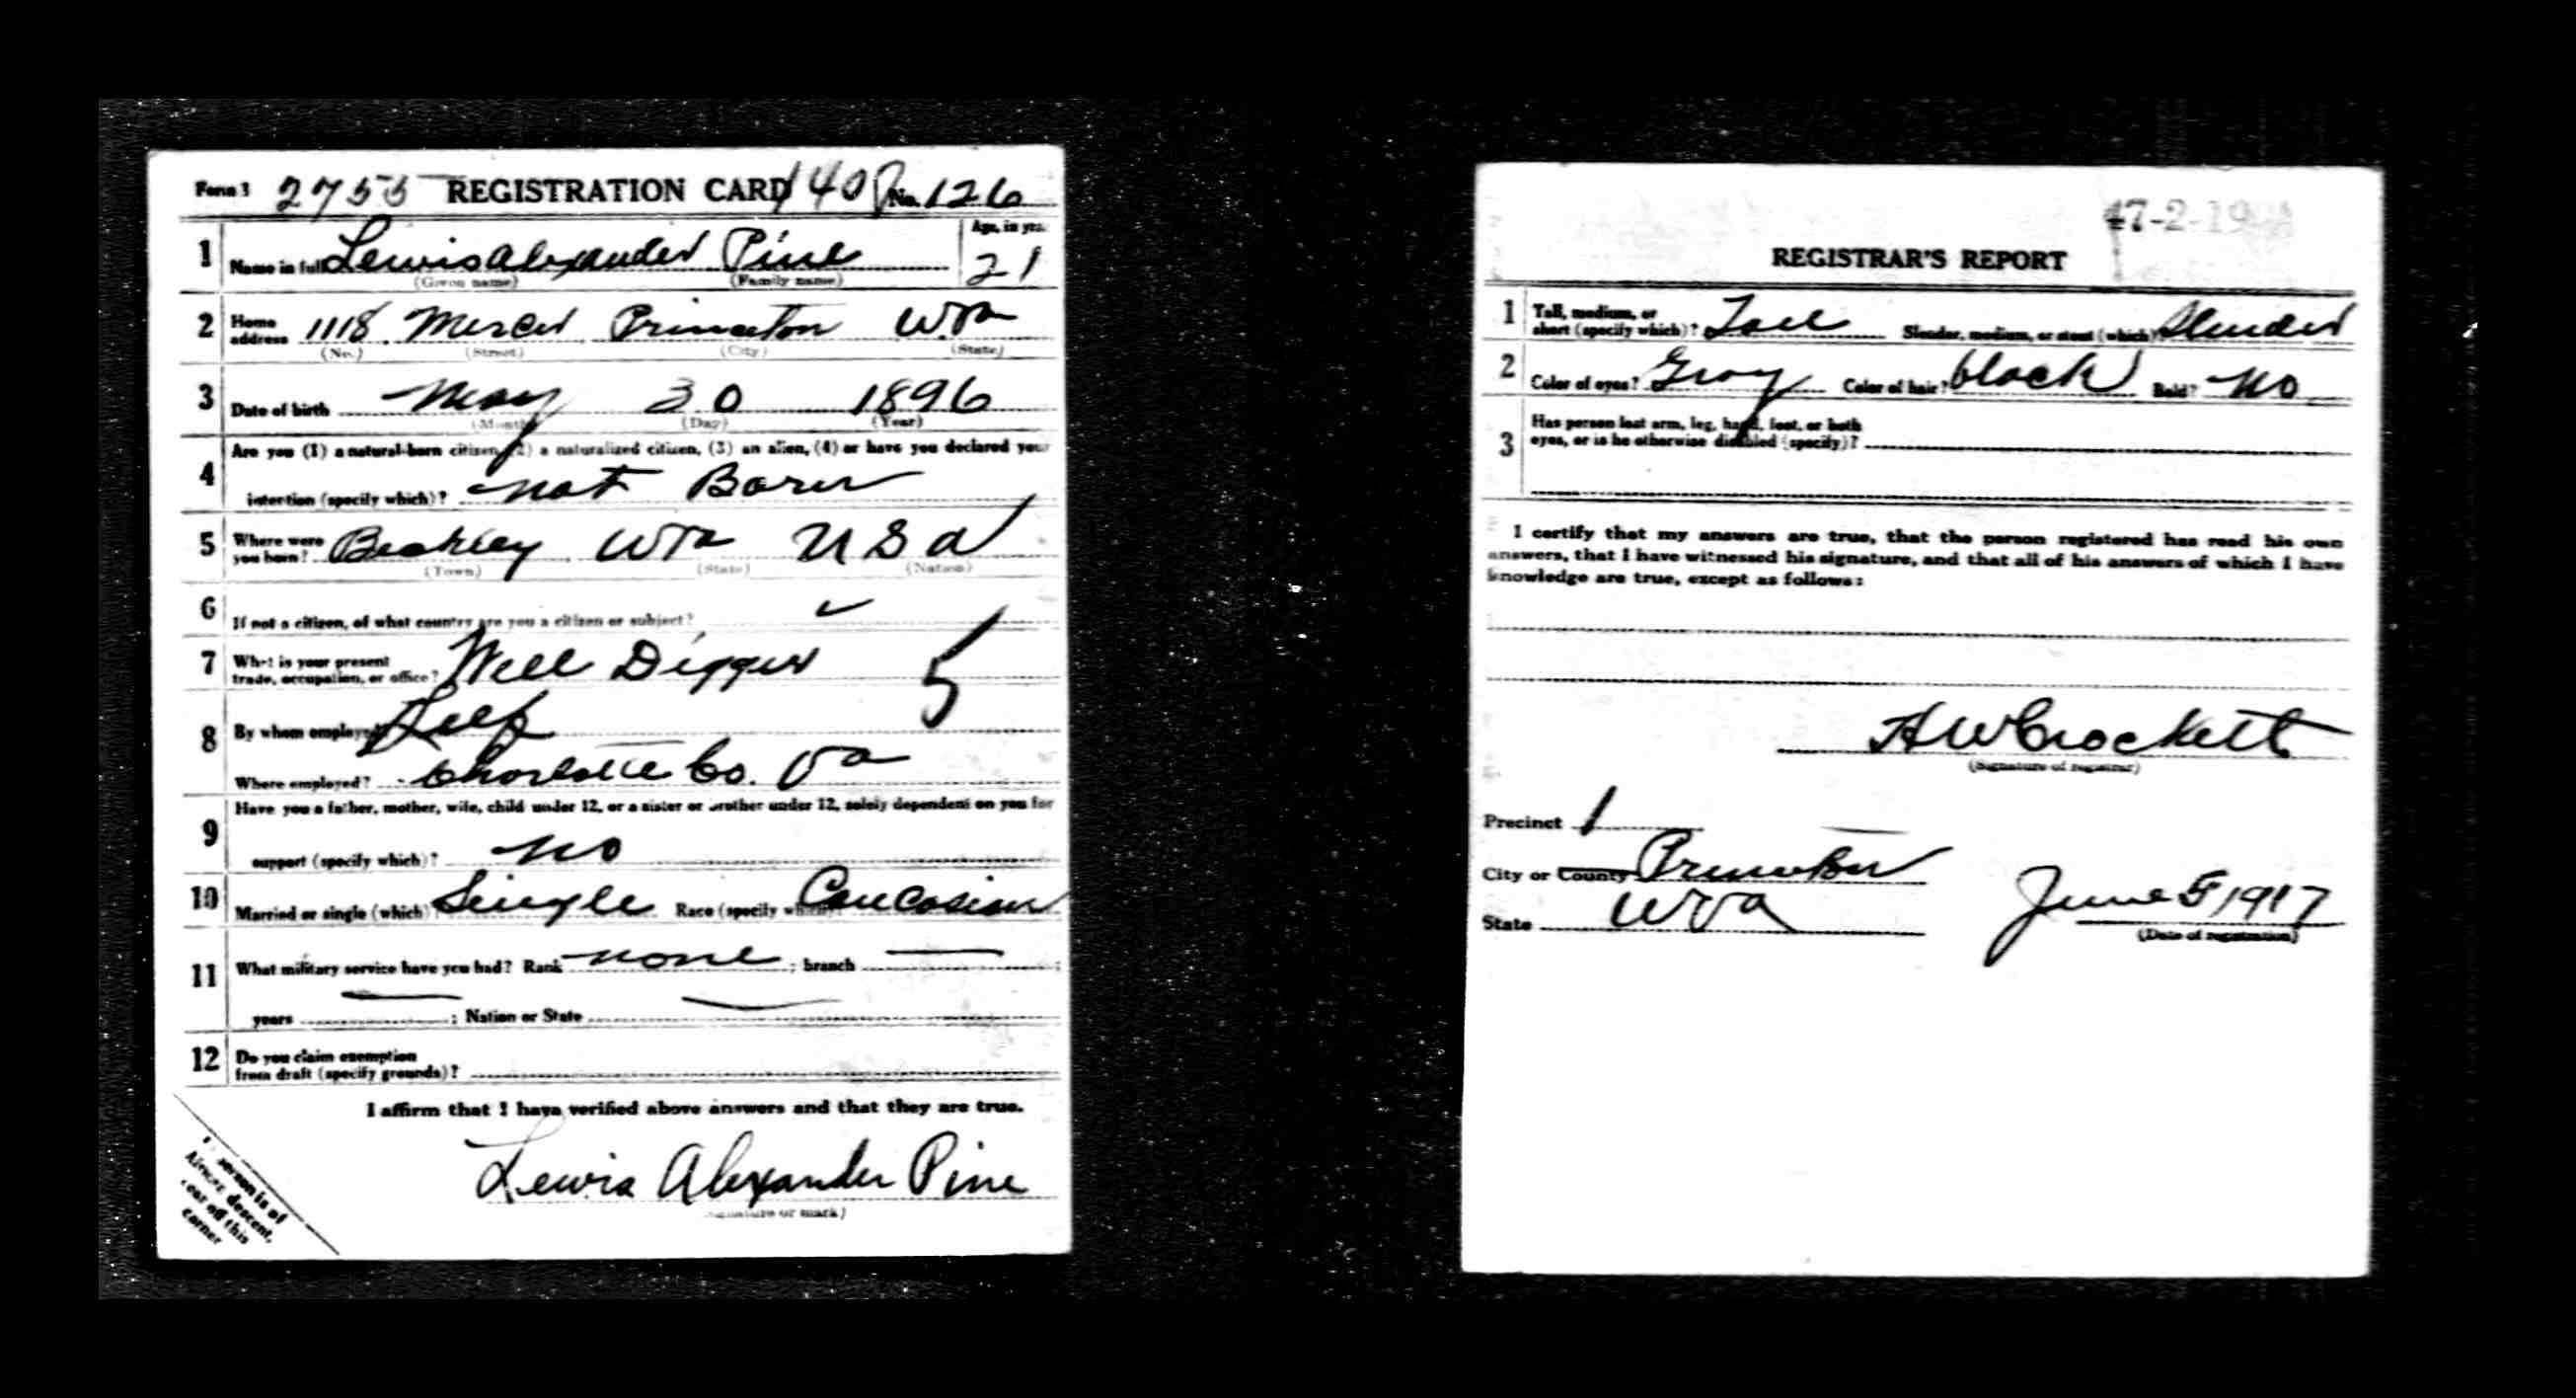 Form 1 2755 REGISTRATION CARD 140 No. 126
1 Name in full Lewis Alexander Pine Age, in yrs. 21
(Given name) (Family name)
2 Home address 1118 Mercer Princeton WVa
(No.) (Street) (City) (State)
3 Date of birth May 30 1896
(Month) (Day) (Year)
4 Are you (1) a natural-born citizen, (2) a naturalized citizen, (3) an alien, (4) or have you declared your
intention (specify which)? Nat Born
5 Where were you born? Beckley WVa USA
(Town) (State) (Nation)
6 If not a citizen, of what country are you a citizen or subject?
7 What is your present trade, occupation, or office? Well Digger 5
8 By whom employed? Self
Where employed? Charlotte Co. Va
9 Have you a father, mother, wife, child under 12, or a sister or brother under 12, solely dependent on you for
support (specify which)? no
10 Married or single (which)? Single Race (specify which)? Caucasian
11 What military service have you had? Rank none ; branch — ;
years — ; Nation or State —
12 Do you claim exemption
from draft (specify grounds)?
I affirm that I have verified above answers and that they are true.
Lewis Alexander Pine
(Signature or mark)
person is of
African descent,
tear off this
corner
47-2-19
REGISTRAR'S REPORT
1 Tall, medium, or short (specify which)? Tall Slender, medium, or stout (which)? Slender
2 Color of eyes? Gray Color of hair? black Bald? No
3 Has person lost arm, leg, hand, foot, or both
eyes, or is he otherwise disabled (specify)?
I certify that my answers are true, that the person registered has read his own
answers, that I have witnessed his signature, and that all of his answers of which I have
knowledge are true, except as follows:
H W Crockett
(Signature of registrar)
Precinct 1
City or County Princeton
State WVa June 5 1917
(Date of registration)